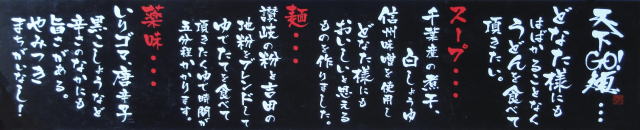 天下GO!麺・・・
どなた様にも
はばかることなく
うどんを食べて
頂きたい。
スープ・・・
千葉産の煮干、
白しょうゆ
信州味噌を使用し
どなた様にも
おいしいと思える
ものを作りました。
麺・・・
讃岐の粉と吉田の
地粉をブレンドして
ゆでたてを食べて
頂きたくゆで時間が
五分程かかります。
薬味・・・
いりゴマ、唐辛子
黒こしょうなど
辛さのなかにも
旨さがある。
やみつき
まちがいなし!